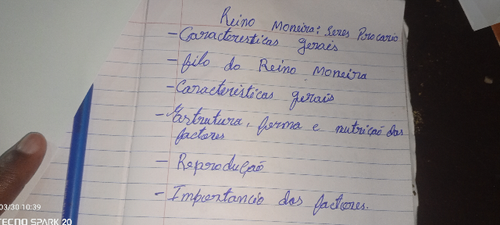 Reino Moneira: Seres Procario
- Caracteresticas gerais
- filo do Reino Moneira
- Caracteristicas gerais
- Estrutura, forma e nutricão das
factores
- Reprodução
- Importancia das factores.
03/30 10:39
TECNO SPARK 20